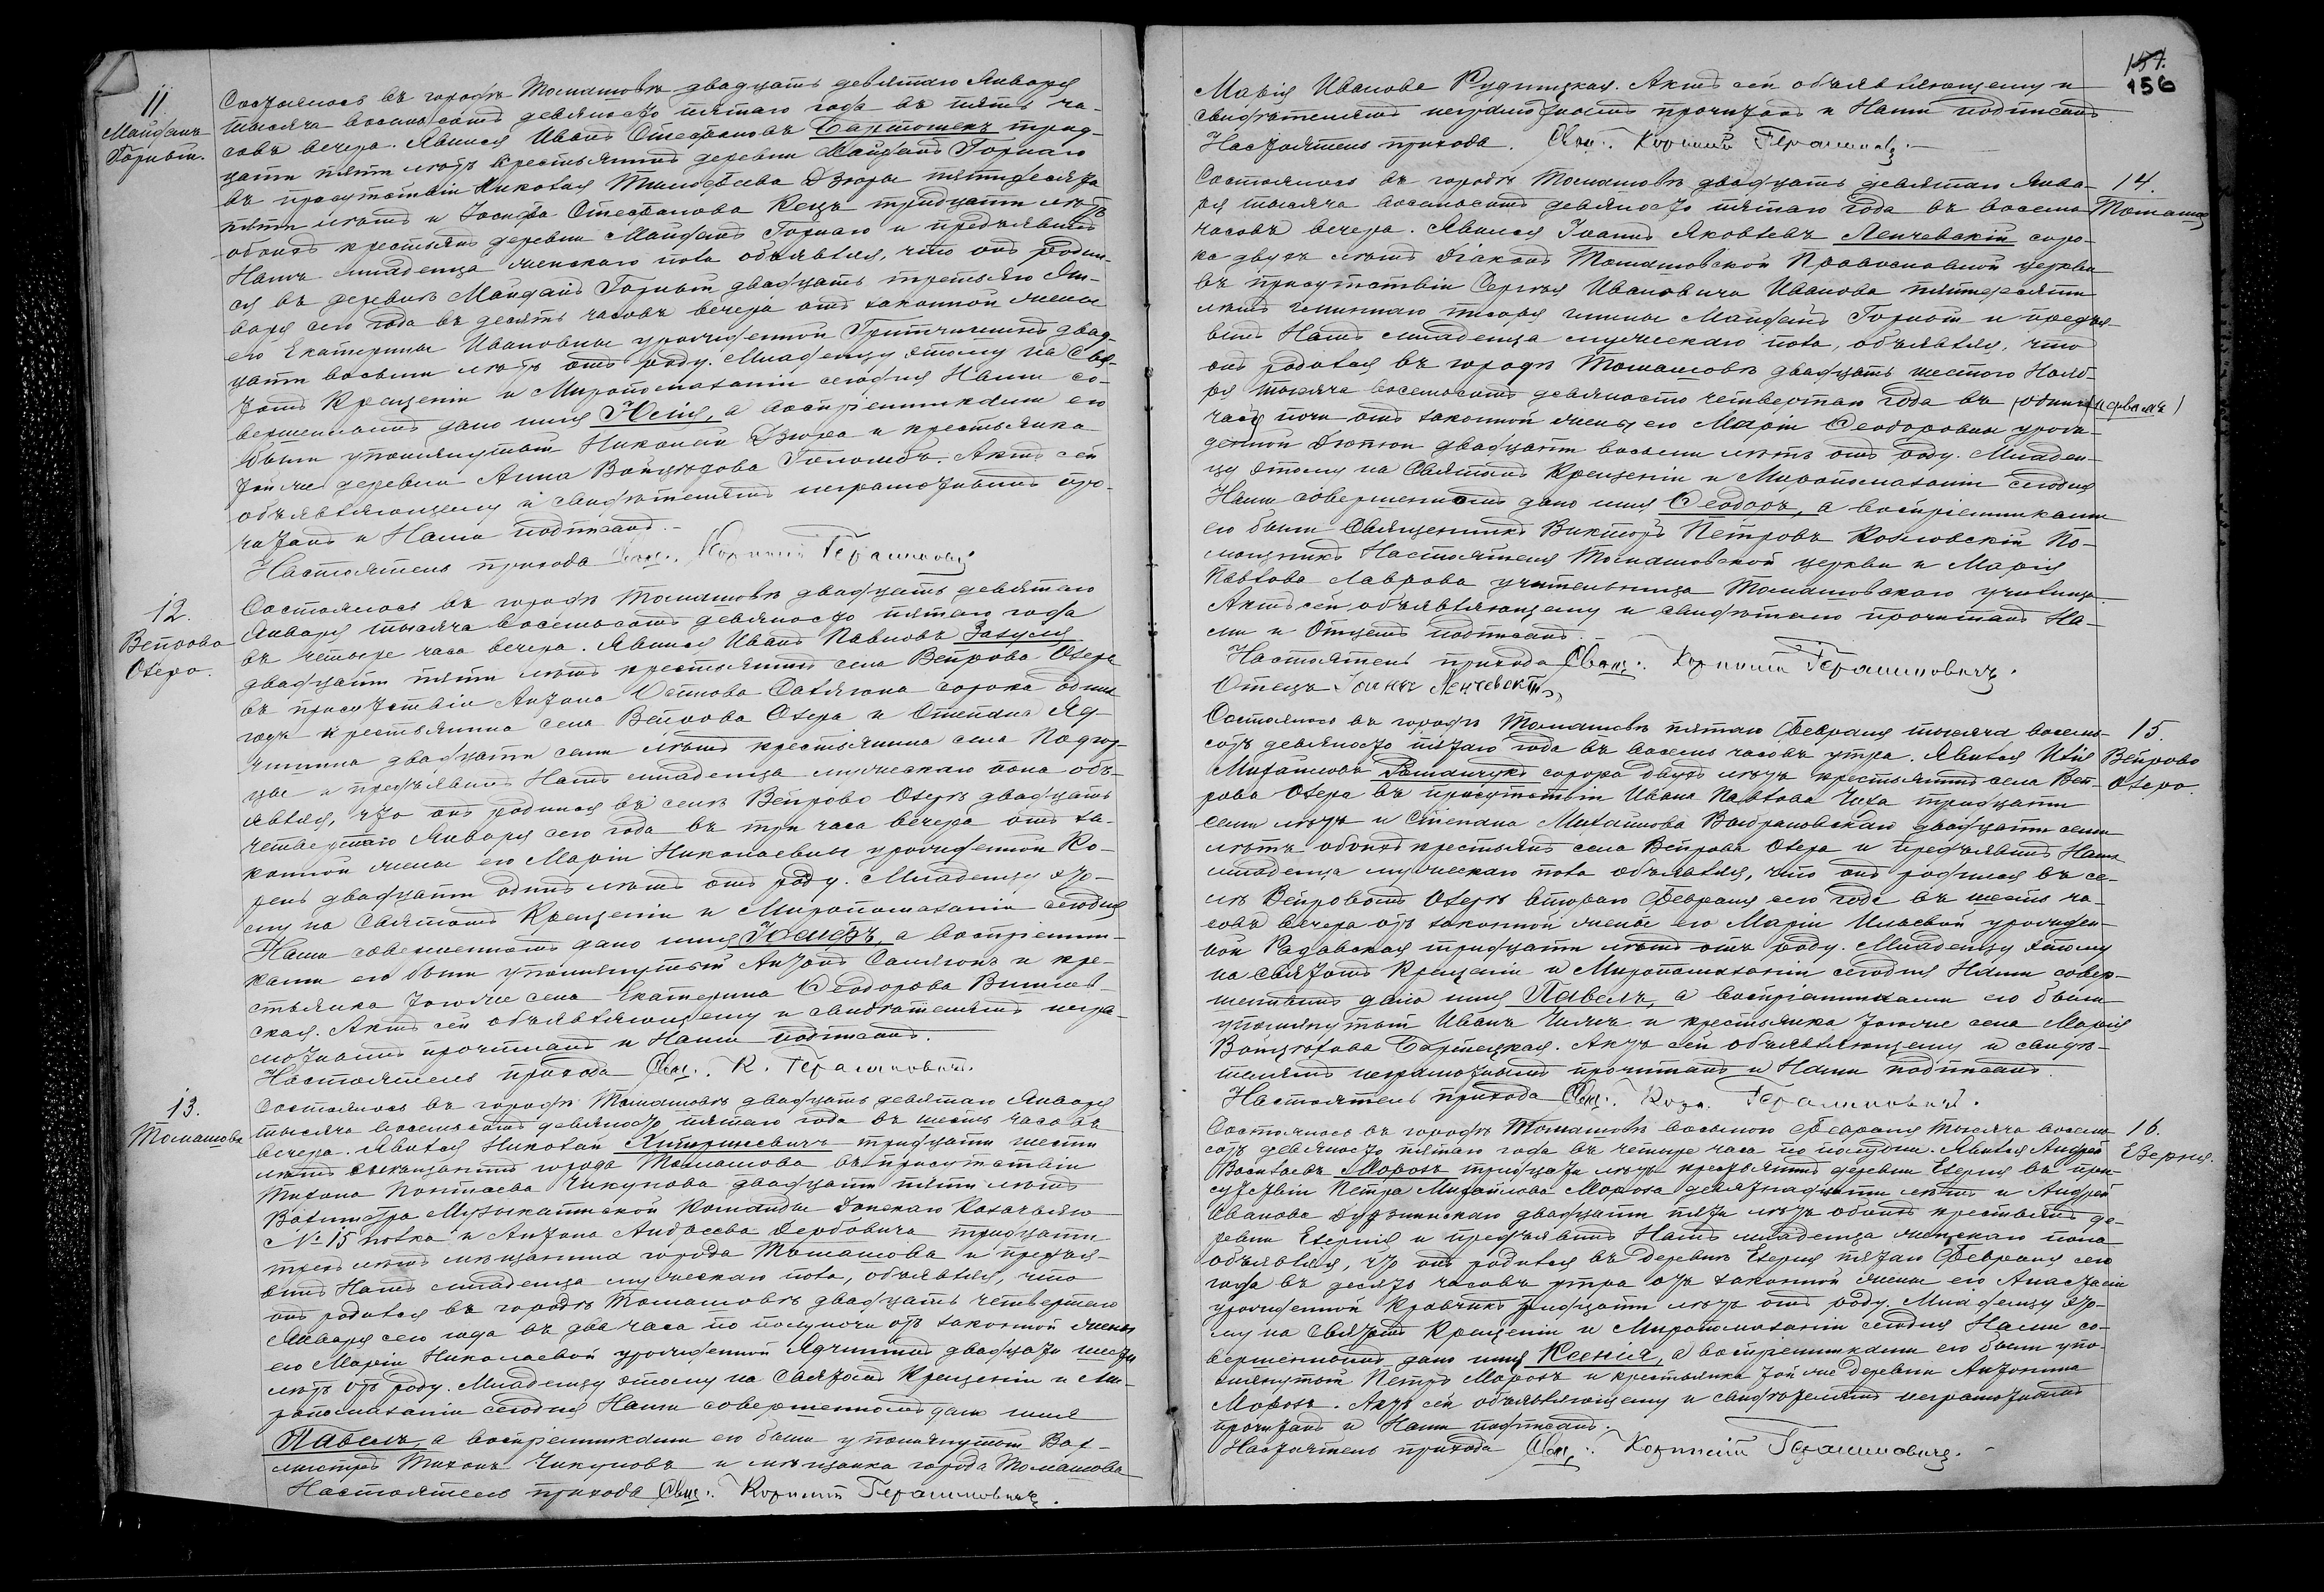 11
Майданъ
Горный.
Состоялось въ городѣ Томашовѣ двадцать девятаго Января
тысяча восемьсотъ девяносто пятаго года въ пять ча-
совъ вечера. Явился Иванъ Стефановъ Бартошекъ трид-
цати пяти лѣтъ крестьянинъ деревни Майданъ Горнаго
въ присутствіи Николая Тимофѣева Дзюры пятидесяти
пяти лѣтъ и Іосифа Стефанова Кецъ тридцати лѣтъ
обоихъ крестьянъ деревни Майданъ Горнаго и предъявилъ
Намъ младенца женскаго пола объявляя, что онъ родил-
ся въ деревнѣ Майданъ Горный двадцать третьяго Ян-
варя сего года въ десять часовъ вечера отъ законной жены
его Екатерины Ивановны урожденной двад-
цати восьми лѣтъ отъ роду. Младенцу этому на Свя-
томъ Крещеніи и Миропомазаніи сегодня Нами со-
вершенномъ дано имя Юлія, а воспріемниками его
были упомянутый Николай Дзюра и крестьянка
той же деревни Анна Войцѣхова Голомбъ. Актъ сей
объявляющему и свидѣтелямъ неграмотнымъ про-
читанъ и Нами подписанъ.
Настоятель прихода Свящ. Корнилій Герасимовичъ
12.
Вепрово
Озеро.
Состоялось въ городѣ Томашовѣ двадцать девятаго
Января тысяча восемьсотъ девяносто пятаго года
въ четыре часа вечера. Явился Иванъ Павловъ Закуля
двадцати пяти лѣтъ крестьянинъ села Вепрова Озера
въ присутствіи Антона Осипова сорока одного
года крестьянина села Вепрова Озера и Степана Яд-
чишина двадцати семи лѣтъ крестьянина села Подгор-
цы и предъявилъ Намъ младенца мужескаго пола объ-
являя, что онъ родился въ селѣ Вепрово Озерѣ двадцать
четвертаго Января сего года въ три часа вечера отъ за-
конной жены его Маріи Николаевны урожденной Ко-
рень двадцати одного лѣтъ отъ роду. Младенцу это-
му на Святомъ Крещеніи и Миропомазаніи сегодня
Нами совершенномъ дано имя Іосифъ, а воспріемни-
ками его были упомянутый Антонъ и кре-
стьянка того же села Екатерина Ѳеодорова Вишнев-
ская. Актъ сей объявляющему и свидѣтелямъ негра-
мотнымъ прочитанъ и Нами подписанъ.
Настоятель прихода Свящ. К. Герасимовичъ.
13.
Томашовъ
Состоялось въ городѣ Томашовѣ двадцать девятаго Января
тысяча восемьсотъ девяносто пятаго года въ шесть часовъ
вечера. Явился Николай тридцати шести
лѣтъ мѣщанинъ города Томашова въ присутствіи
Тихона Пантаева Чикунова двадцати пяти лѣтъ
Вахмистра Музыкантской Команды Донскаго Казачьяго
№ 15 полка и Антона Андреева Дербовича тридцати
трехъ лѣтъ мѣщанина города Томашова и предъя-
вилъ Намъ младенца мужескаго пола, объявляя, что
онъ родился въ городѣ Томашовѣ двадцать четвертаго
Января сего года въ два часа по полуночи отъ законной жены
его Маріи Николаевой урожденной Ядчишинъ двадцати шести
лѣтъ отъ роду. Младенцу этому на Святомъ Крещеніи и Ми-
ропомазаніи сегодня Нами совершенномъ дано имя
Павелъ, а воспріемниками его были упомянутый Вах-
мистръ Тихонъ Чикуновъ и мѣщанка города Томашова
Настоятель прихода Свящ. Корнилій Герасимовичъ.
157.
156
Марія Иванова Рудницкая. Актъ сей объявляющему и
свидѣтелямъ неграмотнымъ прочитанъ и Нами подписанъ.
Настоятель прихода. Свящ. Корнилій Герасимовичъ.
14.
Томашовъ
Состоялось въ городѣ Томашовѣ двадцать девятаго Янва-
ря тысяча восемьсотъ девяносто пятаго года въ восемь
часовъ вечера. Явился Іоаннъ Яковлевъ Ленчевскій соро-
ка двухъ лѣтъ діаконъ Томашовской Православной церкви
въ присутствіи Сергѣя Ивановича Иванова пятидесяти
лѣтъ гминнаго писаря гмины Майданъ Горный и предъя-
вилъ Намъ младенца мужескаго пола, объявляя, что
онъ родился въ городѣ Томашовѣ двадцать шестого Нояб-
ря тысяча восемьсотъ девяносто четвертаго года въ (первомъ)
часу ночи отъ законной жены его Маріи Ѳеодоровны урож-
денной двадцати восьми лѣтъ отъ роду. Младен-
цу этому на Святомъ Крещеніи и Миропомазаніи сегодня
Нами совершенномъ дано имя Ѳеодоръ, а воспріемниками
его были Священникъ Викторъ Петровъ Козловскій По-
мощникъ Настоятеля Томашовской церкви и Марія
Павлова Лаврова учительница Томашовскаго училища.
Актъ сей объявляющему и свидѣтелю прочитанъ На-
ми и Отцемъ подписанъ.
Настоятель прихода Свящ. Корнилій Герасимовичъ.
Отецъ Іоаннъ Ленчевскій
15.
Вепрово
Озеро.
Состоялось въ городѣ Томашовѣ пятаго Февраля тысяча восемь-
сотъ девяносто пятаго года въ восемь часовъ утра. Явился Илія
Михайловъ Романчукъ сорока двухъ лѣтъ крестьянинъ села Веп-
рова Озера въ присутствіи Ивана Павлова тридцати
семи лѣтъ и Степана Михайлова двадцати семи
лѣтъ обоихъ крестьянъ села Вепрова Озера и предъявилъ Намъ
младенца мужескаго пола объявляя, что онъ родился въ се-
лѣ Вепровомъ Озерѣ втораго Февраля сего года въ шесть ча-
совъ вечера отъ законной жены его Маріи Ильевой урожден-
ной Радавская тридцати лѣтъ отъ роду. Младенцу этому
на Святомъ Крещеніи и Миропомазаніи сегодня Нами совер-
шенномъ дано имя Павелъ, а воспріемниками его были
упомянутый Иванъ и крестьянка того же села Марія
Войцѣхова Бортецкая. Актъ сей объявляющему и свидѣ-
телямъ неграмотнымъ прочитанъ и Нами подписанъ.
Настоятель прихода Свящ. Корн. Герасимовичъ.
16.
Езерня.
Состоялось въ городѣ Томашовѣ восьмого Февраля тысяча восемь-
сотъ девяносто пятаго года въ четыре часа по полудни. Явился Андрей
Васильевъ Морозъ тридцати лѣтъ крестьянинъ деревни Езерня въ при-
сутствіи Петра Михайлова Мороза девятнадцати лѣтъ и Андрея
Иванова двадцати пяти лѣтъ обоихъ крестьянъ де-
ревни Езерня и предъявилъ Намъ младенца женскаго пола
объявляя, что онъ родился въ деревнѣ Езерня пятаго Февраля сего
года въ десять часовъ утра отъ законной жены его Анастасіи
урожденной Кравчикъ тридцати лѣтъ отъ роду. Младенцу это-
му на Святомъ Крещеніи и Миропомазаніи сегодня Нами со-
вершенномъ дано имя Ксенія, а воспріемниками его были упо-
мянутый Петръ Морозъ и крестьянка той же деревни Антонина
Морозъ. Актъ сей объявляющему и свидѣтелямъ неграмотнымъ
прочитанъ и Нами подписанъ.
Настоятель прихода Свящ. Корнилій Герасимовичъ.